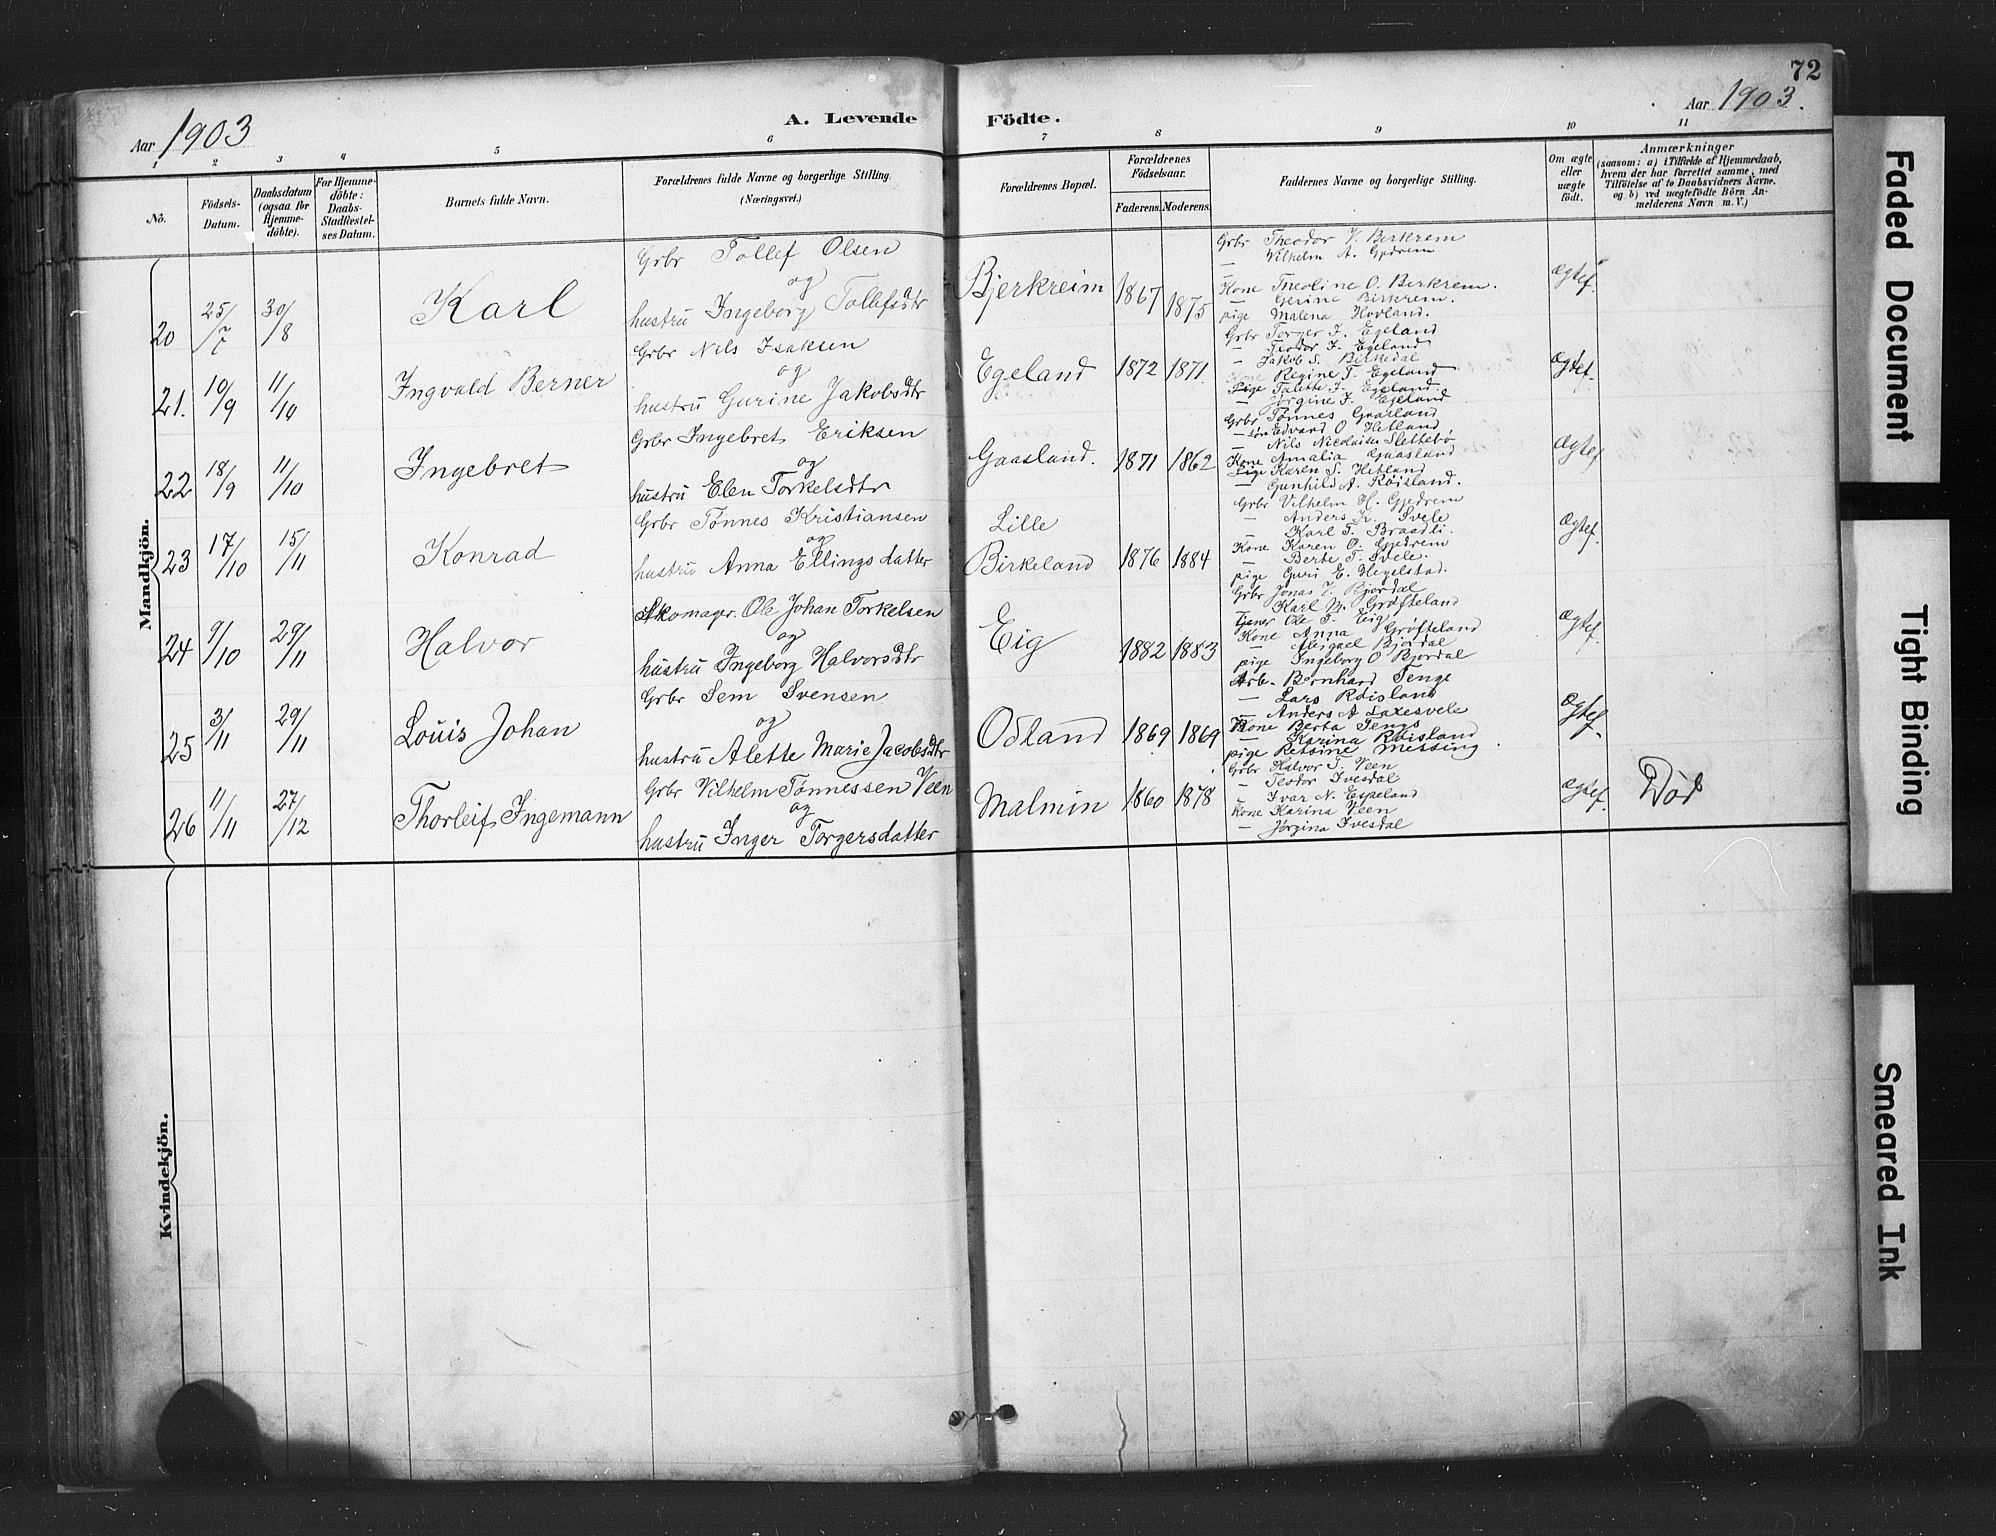 72
Aar 1903
A. Levende
Födte.
Aar 1903.
1 2 3 4 5 6 7 8 9 10 11
Nô.
Födsels-
Datum.
Daabsdatum
(ogsaa for
Hjemme-
döbte).
For Hjemme-
döbte:
Daabs-
Stadfæstel-
ses Datum.
Barnets fulde Navn.
Forældrenes fulde Navne og borgerlige Stilling.
(Næringsvei.)
Forældrenes Bopæl.
Forældrenes
Födselsaar.
Faderens. Moderens.
Faddernes Navne og borgerlige Stilling.
Om ægte
eller
uægte
födt.
Anmærkninger
(saasom: a) i Tilfælde af Hjemmedaab,
hvem der har forrettet samme, med
Tilföielse af to Daabsvidners Navne,
og b) ved uægtefödte Börn An-
melderens Navn m. V.)
Mandkjön.
20 25/7 30/8 Karl
Grbr Tollef Olsen
og
hustru Ingeborg Tollefsdtr
Bjerkreim 1867 1875
Grbr Theodor V. Birkrem
— Vilhelm A. Gjedrem
Kone Theoline O. Birkrem.
— Gerine Birkrem.
pige Malena Hovland.
Ægtef.
21. 10/9 11/10 Ingvald Berner
Grbr Nils Isaksen
og
hustru Gurine Jakobsdtr
Egeland 1872 1871.
Grbr Torger J. Egeland
— Teodor J. Egeland
— Jakob S. Birkedal
Kone Regine T. Egeland
Pige Talette J. Egeland.
— Jørgine J. Egeland
Ægtef.
22 18/9 11/10 Ingebret
Grbr Ingebret Eriksen
og
hustru Elen Torkelsdtr
Gaasland. 1871 1862
Grbr Tønnes Gaasland
— søn Edvard O Hetland
— Nils Nicolaisen Slettebø
Kone Amalia Gaasland
Pige Karen S. Hetland
— Gunhild A. Røisland.
Ægtef
23 17/10 15/11 Konrad
Grbr Tønnes Kristiansen
og
hustru Anna Ellingsdatter
Lille
Birkeland 1876 1884
Grbr Vilhelm H. Gjedrem
— Anders K. Svele
— Karl T. Braadli.
Kone Karen O. Gjedrem
— Berte T. Svele.
pige Guri E. Hegelstad.
Ægtef.
24 9/10 29/11 Halvor
Skomagr. Ole Johan Torkelsen
og
hustru Ingeborg Halvorsdtr
Eig 1882 1883
Grbr Jonas V. Bjordal
— Karl M. Grøfteland
tjener Ole T. Eig
Kone Anna Grøfteland
— Abigael Bjordal
pige Ingeborg O Bjordal
Ægtef.
25 3/11 29/11 Louis Johan
Grbr Sem Svensen
og
hustru Alette Marie Jacobsdtr
Odland 1869 1869
Arb. Bernhard Tengs
— Lars Røisland
— Anders A Laxesvele
Kone Berta Tengs
— Karina Røisland
pige Retsine Messing.
Ægtef.
26 11/11 27/12 Thorleif Ingemann
Grbr Vilhelm Tønnessen Veen
og
hustru Inger Torgersdatter
Malmin 1860 1878
Grbr Halvor T. Veen
— Teodor Ivesdal
— Ivar N. Espeland
Kone Karina Veen
— Jørgina Ivesdal
Ægtef. Død
Kvindekjön.
Faded Document
Tight Binding
Smeared Ink